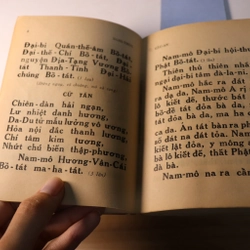 Đại-bi Quán-thế-âm Bồ-tát.
Đại-thế Chí Bồ-tát. Đại-
nguyện Địa-Tạng Vương Bồ-
tát Thanh-Tịnh Đại-Hải
chúng Bồ-tát.
CỬ TÁN
Chiên-đàn hải ngạn,
Lư nhiệt danh hương,
Da-Du tử mẫu lưỡng vô ương,
Hỏa nội đắc thanh
lương, Chí tâm kim tương,
Nhứt chú biến thập-phương.
Nam-mô Hương-Vân-Cái
Bồ-tát ma-ha-tát.
Nam-mô Đại-bi hội-thu
Phật Bồ-tát.
Thiên thủ thiên nhã
ngại đại-bi tâm đà-la-ni.
Nam-mô hắc ra đát
ra dạ da. Nam-mô A rị
lô kiết đế, thước bát ra
đề tát đỏa bà da, ma
tát đỏa bà da, ma ha
ca da. Án tát bàn ra ph
số đát na đát tỏa. Nam
kiết lật đỏa, y mông a
bà lô kiết đế, thất Phật
đà bà.
Nam-mô na ra cẩn